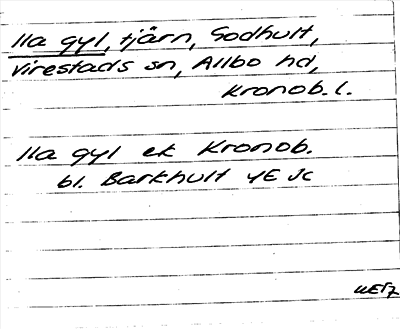 lla gyl, tjärn, Godhult,
Virestads sn, Allbo hd,
Kronob. l.
lla gyl ek Kronob.
bl. Barkhult 4E Jc